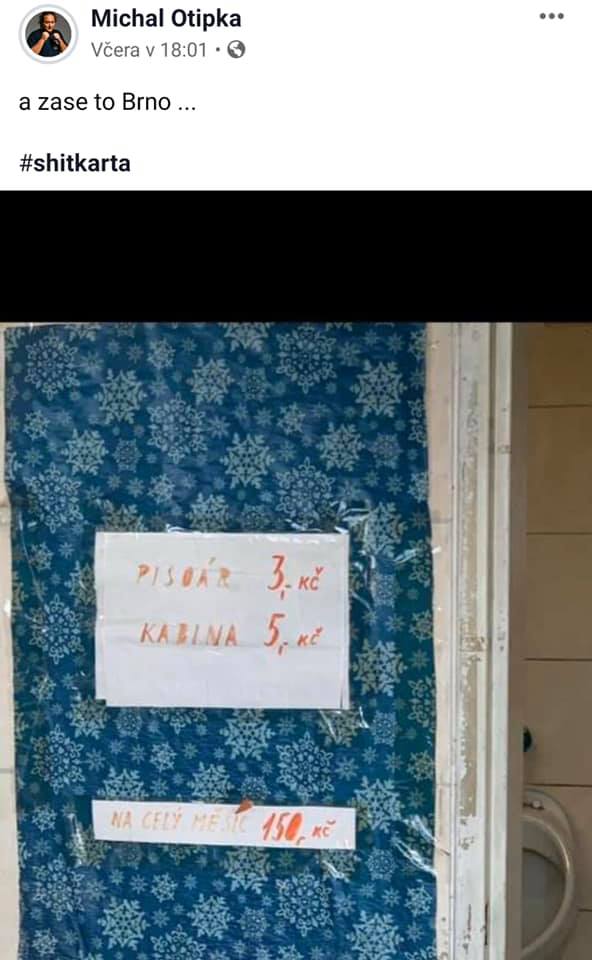 Michal Otipka
Včera v 18:01 ·
a zase to Brno ...
#shitkarta
PISOÁR 3,- KČ
KABINA 5,- KČ
NA CELÝ MĚSÍC 150,- KČ